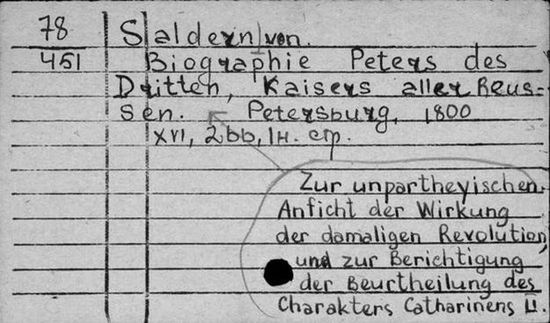 78
451
Saldern, von.
Biographie Peters des
Dritten, Kaisers aller Reus=
sen. Petersburg, 1800
XVI, 266, 1н. стр.
Zur unpartheyischen
Anficht der Wirkung
der damaligen Revolution,
und zur Berichtigung
der Beurtheilung des
Charakters Catharinens II.